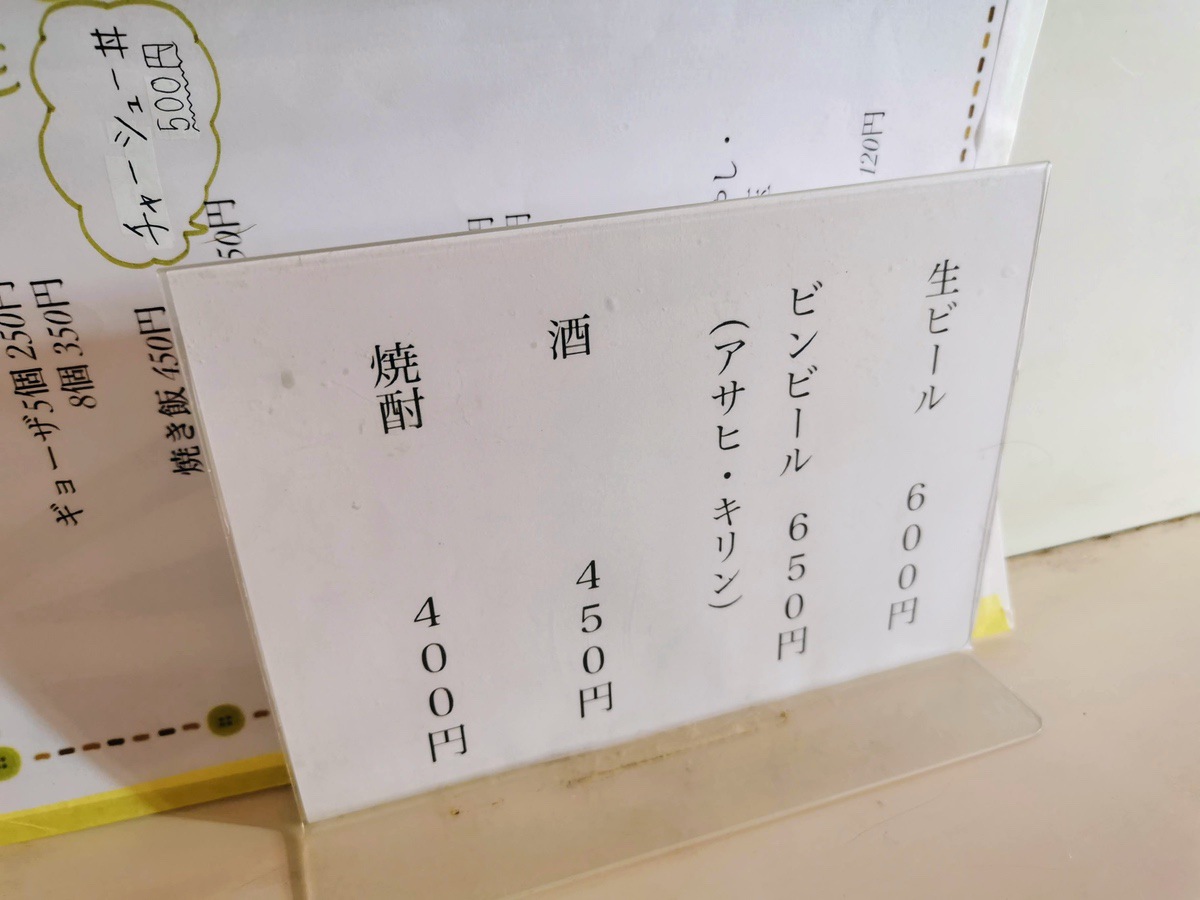 生ビール　６００円
ビンビール　６５０円
（アサヒ・キリン）
酒　４５０円
焼酎　４００円
120円
チャーシュー丼
500円
50円
焼き飯 450円
ギョーザ5個 250円
8個 350円